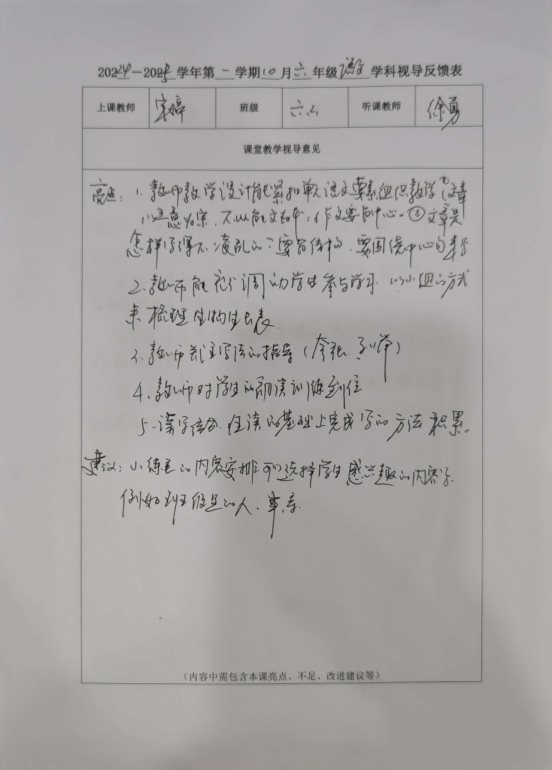 2024-2025学年第一学期10月六年级语文学科视导反馈表
上课教师 宋婷 班级 六 听课教师 徐勇
课堂教学视导意见
亮点：1. 教师教学设计能紧扣单元语文要素组织教学①文章
以意为宗，不以能文为本，作文要有中心。②文章是
怎样写得不凌乱的？要有结构，要围绕中心
2. 教师能充分调动学生参与学习 以小组的方式
来梳理生物生长表
3. 教师关注写法的指导（夸张、列举）
4. 教师对学生的朗读训练到位
5. 读写结合，在读的基础上完成写的方法积累。
建议：小练笔的内容安排可选择学生感兴趣的内容写
例如班级里的人、事、
（内容中需包含本课亮点、不足、改进建议等）